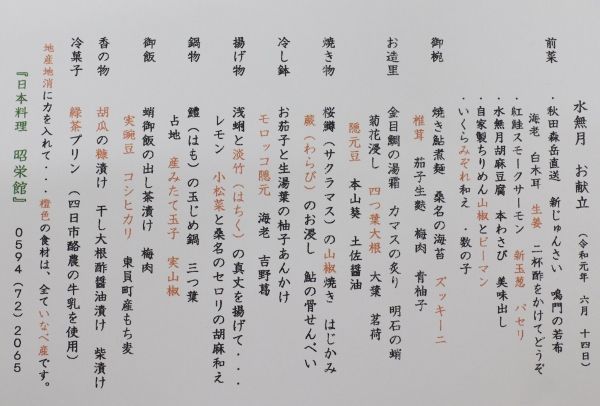 水無月　お献立　（令和元年　六月　十四日）
前菜　・秋田森岳直送　新じゅんさい　鳴門の若布
海老　白木耳　生姜　二杯酢をかけてどうぞ
・紅鮭スモークサーモン　新玉葱　パセリ
・水無月胡麻豆腐　本わさび　美味出し
・自家製ちりめん山椒とピーマン
・いくらみぞれ和え　・数の子
御椀　焼き鮎煮麺　桑名の海苔　ズッキーニ
椎茸　茄子生麩　梅肉　青柚子
お造里　金目鯛の湯霜　カマスの炙り　明石の蛸
菊花浸し　四つ葉大根　大葉　茗荷
隠元豆　本山葵　土佐醤油
焼き物　桜鱒（サクラマス）の山椒焼き　はじかみ
蕨（わらび）のお浸し　鮎の骨せんべい
冷し鉢　お茄子と生湯葉の柚子あんかけ
モロッコ隠元　海老　吉野葛
揚げ物　浅蜊と淡竹（はちく）の真丈を揚げて・・・
レモン　小松菜と桑名のセロリの胡麻和え
鍋物　鱧（はも）の玉じめ鍋　三つ葉
占地　産みたて玉子　実山椒
御飯　蛸御飯の出し茶漬け　梅肉
実豌豆　コシヒカリ　東員町産もち麦
香の物　胡瓜の糠漬け　干し大根酢醤油漬け　柴漬け
冷菓子　緑茶プリン（四日市酪農の牛乳を使用）
地産地消に力を入れて・・・橙色の食材は、全ていなべ産です。
『日本料理　昭栄館』　０５９４（７２）２０６５